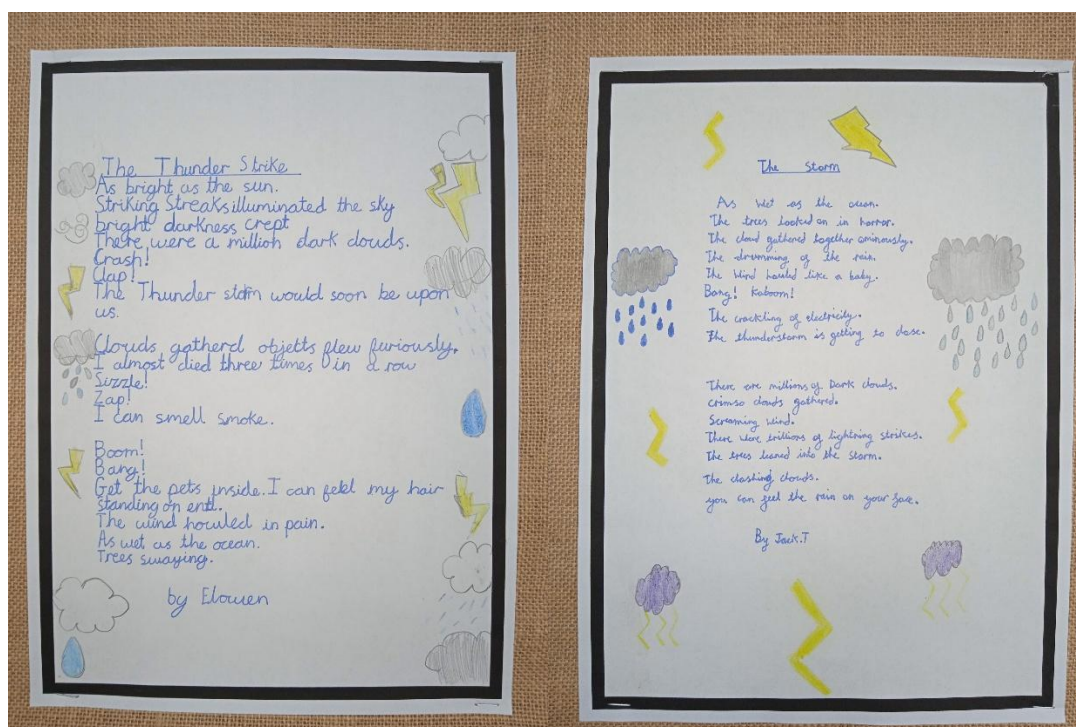 The Thunder Strike
As bright as the sun.
Striking Streaks illuminated the sky
bright darkness crept
There were a million dark clouds.
Crash!
Clap!
The Thunder storm would soon be upon
us.
Clouds gatherd objetts flew furiously.
I almost died three times in a row
Sizzle!
Zap!
I can smell smoke.
Boom!
Bang!
Get the pets inside. I can feel my hair
standing on end.
The wind howled in pain.
As wet as the ocean.
Trees swaying.
by Elowen
The Storm
As wet as the ocean.
The trees looked on in horror.
The cloud gathered together ominously.
The drumming of the rain.
The wind howled like a baby.
Bang! Kaboom!
The crackling of electricity.
The thunderstorm is getting to close.
There are millions of Dark clouds.
crimso clouds gathered.
Screaming wind.
There were trillions of lightning strikes.
The trees leaned into the storm.
The clashing clouds.
you can feel the rain on your face.
By Jack.T